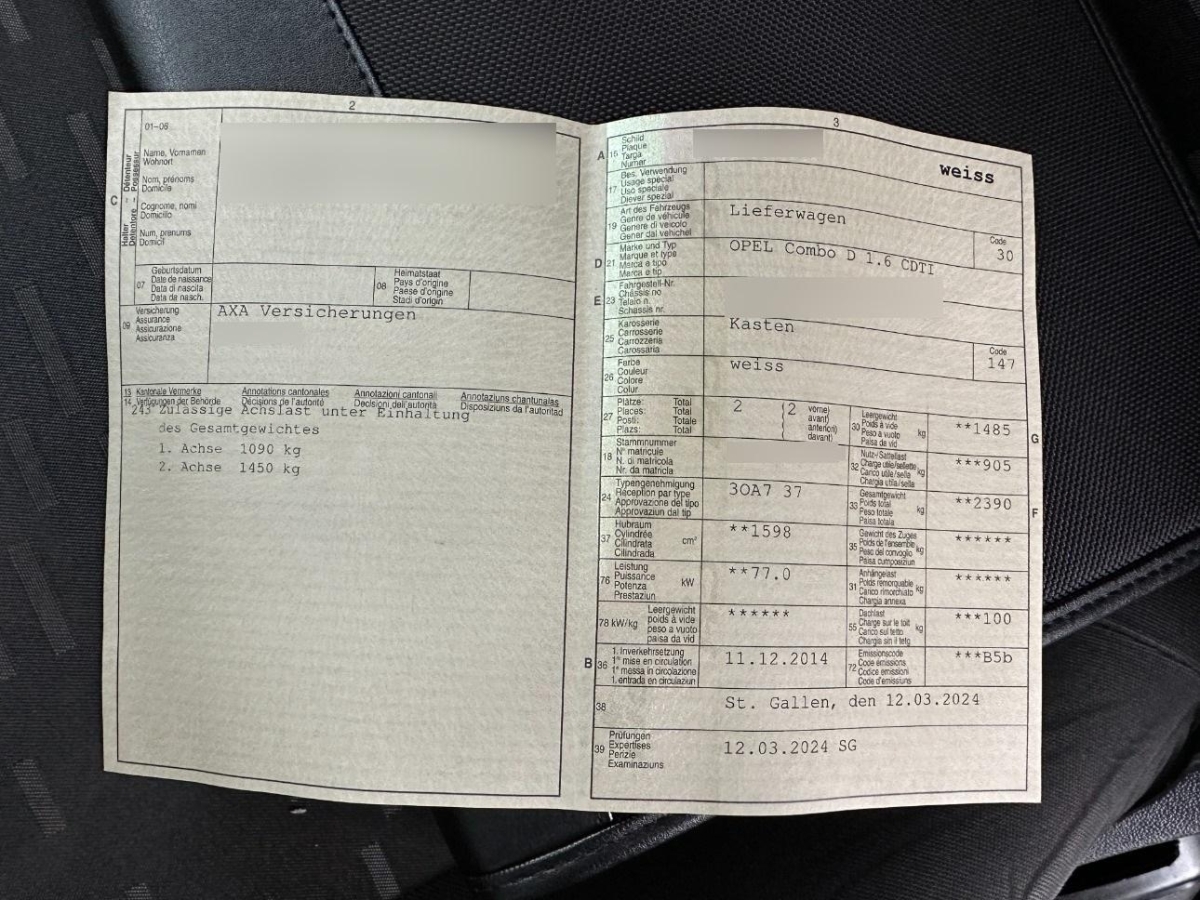 2
01-06
Halter Détenteur
Detentore Possessur
C
Name, Vornamen
Wohnort
Nom, prénoms
Domicile
Cognome, nomi
Domicilio
Num, prenums
Domicil
07
Geburtsdatum
Date de naissance
Data di nascita
Data da nasch.
08
Heimatstaat
Pays d'origine
Paese d'origine
Stadi d'origin
09
Versicherung
Assurance
Assicurazione
Assicuranza
AXA Versicherungen
13 Kantonale Vermerke Annotations cantonales Annotazioni cantonali Annotaziuns chantunalas
14 Verfügungen der Behörde Décisions de l'autorité Decisioni dell'autorità Disposiziuns da l'autoritad
243 Zulässige Achslast unter Einhaltung
des Gesamtgewichtes
1. Achse 1090 kg
2. Achse 1450 kg
3
A 15
Schild
Plaque
Targa
Numer
weiss
17
Bes. Verwendung
Usage spécial
Uso speciale
Diever spezial
19
Art des Fahrzeugs
Genre de véhicule
Genere di veicolo
Gener dal vehichel
Lieferwagen
Code
30
D 21
Marke und Typ
Marque et type
Marca e tipo
Marca e tip
OPEL Combo D 1.6 CDTI
E 23
Fahrgestell-Nr.
Châssis no
Telaio n.
Schassis nr.
25
Karosserie
Carrosserie
Carrozzeria
Carossaria
Kasten
Code
147
26
Farbe
Couleur
Colore
Colur
weiss
27
Plätze: Total
Places: Total
Posti: Totale
Plazs: Total
2 (2
vorne)
avant)
anteriori)
davant)
30
Leergewicht
Poids à vide
Peso a vuoto
Paisa da vid
kg
**1485
G
18
Stammnummer
N° matricule
N. di matricola
Nr. da matricla
32
Nutz-/Sattellast
Charge utile/sellette
Carico utile/sella
Chargia utila/sella
kg
***905
24
Typengenehmigung
Réception par type
Approvazione del tipo
Approvaziun dal tip
3OA7 37
33
Gesamtgewicht
Poids total
Peso totale
Paisa totala
kg
**2390
F
37
Hubraum
Cylindrée
Cilindrata
Cilindrada
cm³
**1598
35
Gewicht des Zuges
Poids de l'ensemble
Peso del convoglio
Paisa cumposiziun
kg
******
76
Leistung
Puissance
Potenza
Prestaziun
kW
**77.0
31
Anhängelast
Poids remorquable
Carico rimorchiato
Chargia annexa
kg
******
78 kW/kg
Leergewicht
poids à vide
peso a vuoto
paisa da vid
******
55
Dachlast
Charge sur le toit
Carico sul tetto
Chargia sin il tetg
kg
***100
B 36
1. Inverkehrsetzung
1re mise en circulation
1a messa in circolazione
1. entrada en circulaziun
11.12.2014
72
Emissionscode
Code émissions
Codice emissioni
Code d'emissiuns
***B5b
38
St. Gallen, den 12.03.2024
39
Prüfungen
Expertises
Perizie
Examinaziuns
12.03.2024 SG